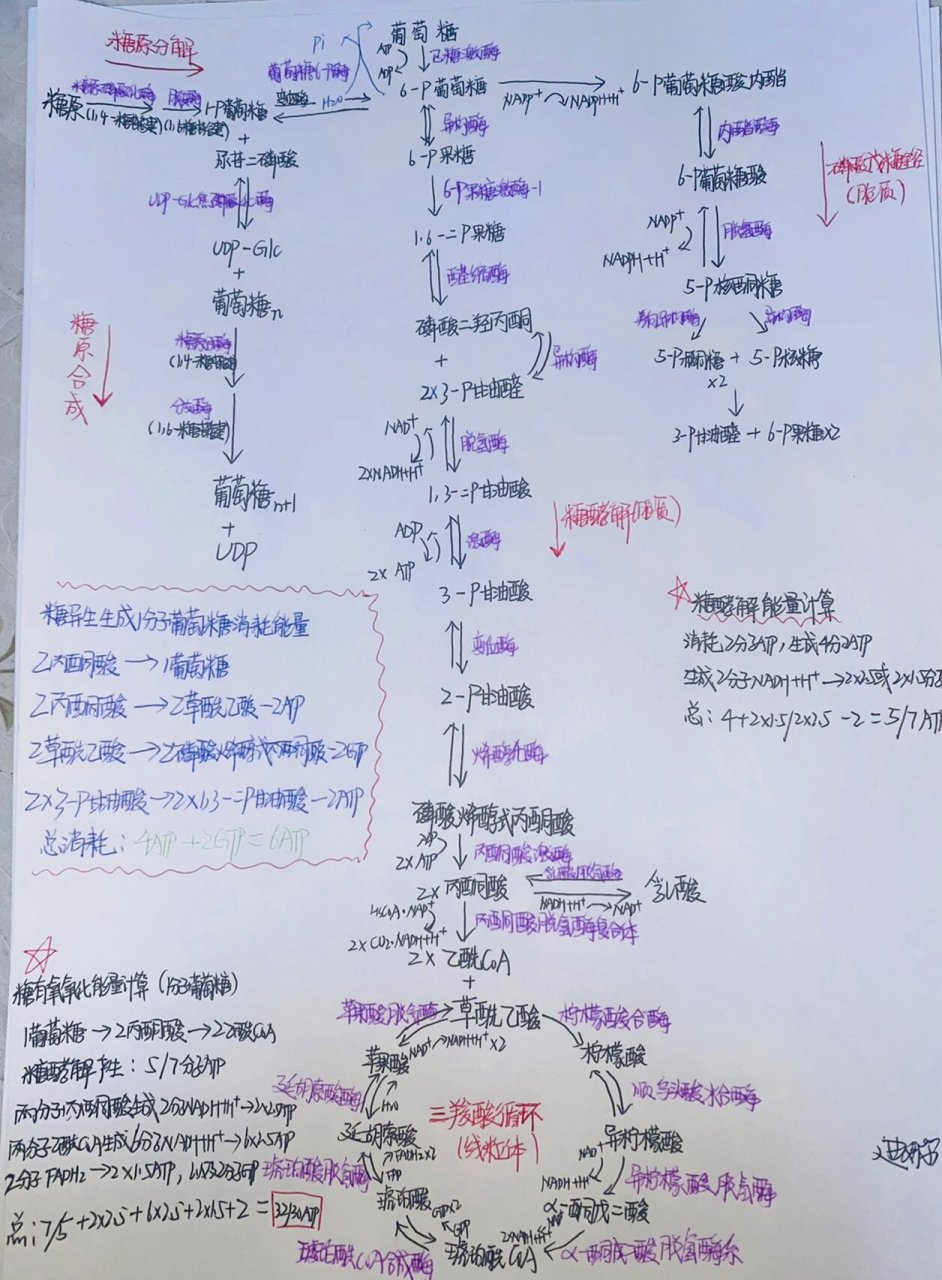 糖原分解
葡萄糖
ATP
ADP
己糖激酶
Pi
葡萄糖6-P酶
H2O
糖原
糖原磷酸化酶
(1,4-糖苷键)
脱枝酶
(1,6糖苷键)
1-P葡萄糖
变位酶
6-P葡萄糖
NADP+
NADPH+H+
6-P葡萄糖酸内酯
+
尿苷二磷酸
UDP-Glc焦磷酸化酶
UDP-Glc
+
葡萄糖n
糖原合酶
(1,4-糖苷键)
分枝酶
(1,6-糖苷键)
葡萄糖n+1
+
UDP
糖原合成
异构酶
6-P果糖
6-P果糖激酶-1
1,6-二P果糖
醛缩酶
磷酸二羟丙酮
+
异构酶
2×3-P甘油醛
NAD+
2×NADH+H+
脱氢酶
1,3-二P甘油酸
ADP
2× ATP
激酶
3-P甘油酸
变位酶
2-P甘油酸
烯醇化酶
磷酸烯醇式丙酮酸
ADP
2×ATP
丙酮酸激酶
2×丙酮酸
乳酸脱氢酶
NADH+H+
NAD+
乳酸
HSCoA·NAD+
2×CO2·NADH+H+
丙酮酸脱氢酶复合体
2×乙酰CoA
+
糖酵解(胞质)
内酯酶
6-P葡萄糖酸
NADP+
NADPH+H+
脱氢酶
5-P核酮糖
异构酶
5-P木酮糖 + 5-P核糖
×2
3-P甘油醛 + 6-P果糖×2
磷酸戊糖途径
(胞质)
糖异生生成1分子葡萄糖消耗能量
2丙酮酸→1葡萄糖
2丙酮酸→2草酰乙酸-2ATP
2草酰乙酸→2磷酸烯醇式丙酮酸-2GTP
2×3-P甘油酸→2×1,3-二P甘油酸-2ATP
总消耗：4ATP+2GTP=6ATP
糖酵解能量计算
消耗2分子ATP,生成4分子ATP
生成2分子NADH+H+→2×2.5或2×1.5分子
总：4+2×1.5/2×2.5-2=5/7AT
糖有氧氧化能量计算（1分子葡萄糖）
1葡萄糖→2丙酮酸→2乙酰CoA
糖酵解产生：5/7分子ATP
两分子丙酮酸生成2分子NADH+H+→2×2.5ATP
两分子乙酰CoA生成6分子NADH+H+→6×2.5ATP
2分子FADH2→2×1.5ATP,以及2分子GTP
总：7/5+2×2.5+6×2.5+2×1.5+2=32/30ATP
草酰乙酸
柠檬酸合酶
柠檬酸
顺乌头酸水合酶
异柠檬酸
NAD+
NADH+H+
异柠檬酸脱氢酶
α-酮戊二酸
2×NADH+H+
α-酮戊二酸脱氢酶系
琥珀酰CoA
GTP×2
GDP
琥珀酰CoA合成酶
琥珀酸
琥珀酸脱氢酶
FADH2×2
FAD
延胡索酸
延胡索酸酶
H2O
苹果酸
苹果酸脱氢酶
NAD+
NADH+H+×2
三羧酸循环
(线粒体)